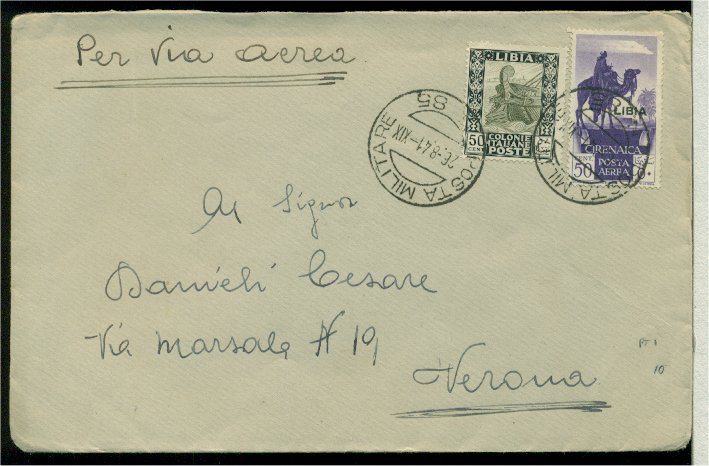 Per via aerea
LIBIA
50
CENT
COLONIE
ITALIANE
POSTE
LIBIA
CIRENAICA
CENT.
50
POSTA
AEREA
POSTA MILITARE
85
26-8-41-XIX
Al Signor
Danieli Cesare
Via Marsala N 19
Verona
PT 1
10